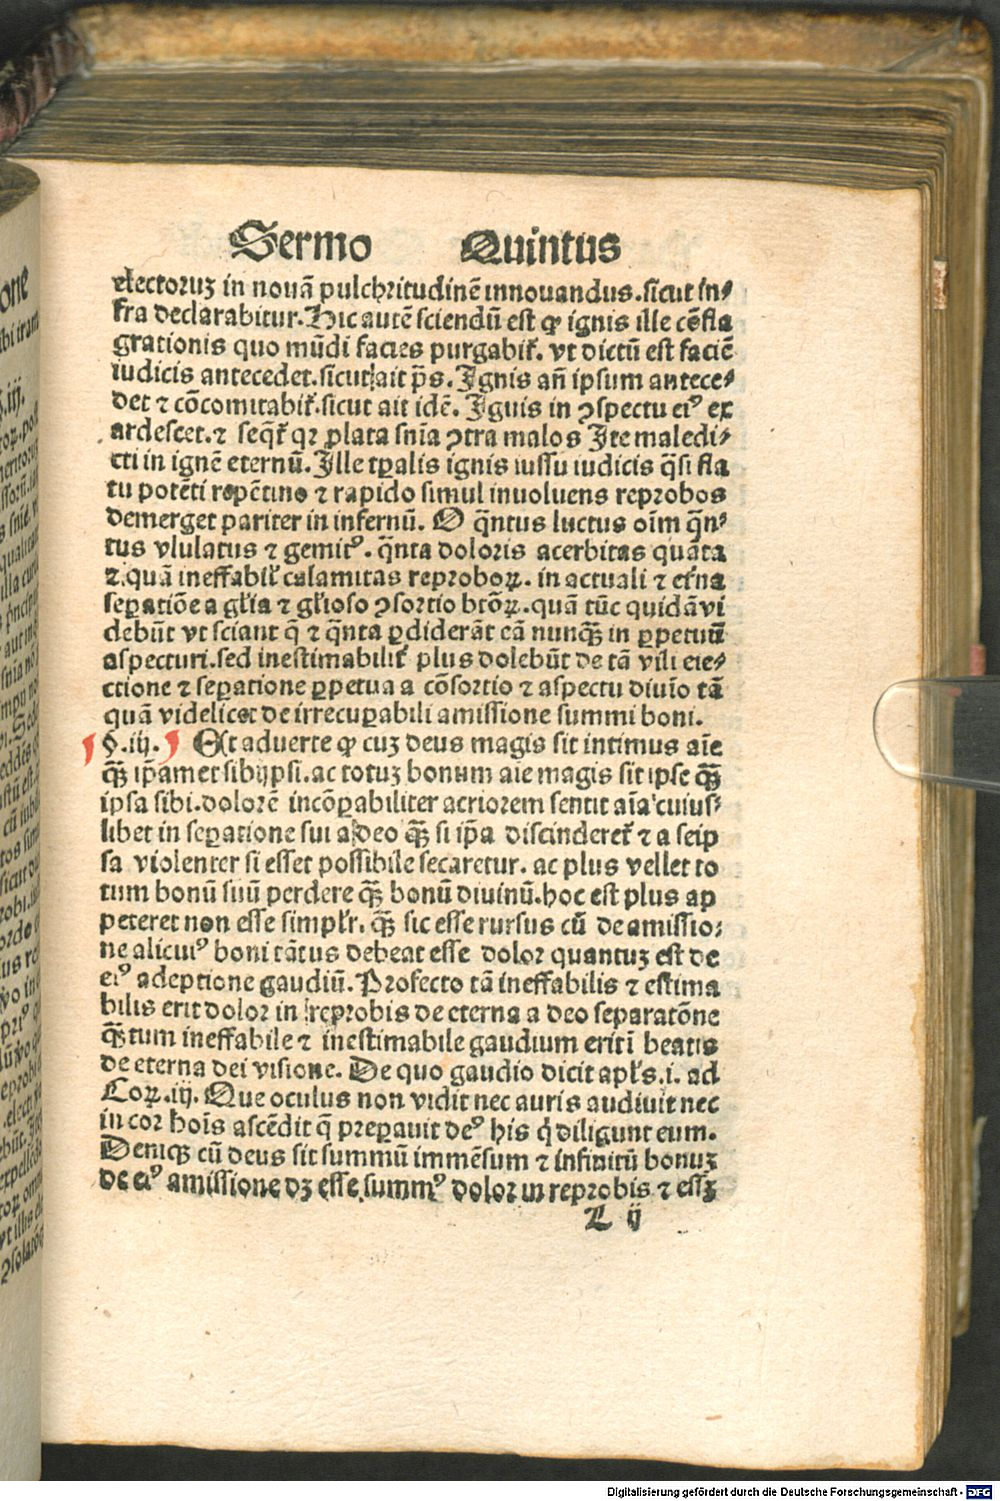 Sermo Quintus
electoruꝫ in nouā pulchritudinē innouandus.sicut in⸗
fra declarabitur.Hic autē sciendū est ꝙ ignis ille cōfla
grationis quo mūdi facies purgabit̄. vt dictū est faciē
iudicis antecedet.sicut ait p̄s. Ignis añ ipsum antece⸗
det ⁊ cōcomitabit̄.sicut ait idē. Ignis in ↄspectu eiꝰ ex
ardescet.⁊ seqt̄ qꝛ ꝓlata snīa ↄtra malos Ite maledi⸗
cti in ignē eternū. Ille tꝑalis ignis iussu iudicis q̄si fla
tu potēti repētino ⁊ rapido simul inuoluens reprobos
demerget pariter in infernū. O q̄ntus luctus oīm q̄n⸗
tus vlulatus ⁊ gemitꝰ. q̄nta doloris acerbitas quāta
⁊ quā ineffabil̄ calamitas reproboꝝ. in actuali ⁊ et̄na
seꝑatiōe a gl̄ia ⁊ gl̄ioso ↄsortio btōꝝ.quā tūc quidā vi
debūt vt sciant q̄ ⁊ q̄nta ꝑdiderāt eā nunqꝫ in ꝑpetuū
aspecturi.sed inestimabilit̄ plus dolebūt de tā vili eie⸗
ctione ⁊ seꝑatione ꝑpetua a cōsortio ⁊ aspectu diuīo tā
quā videlicet de irrecuꝑabili amissione summi boni.
§.iij. Est aduerte ꝙ cuꝫ deus magis sit intimus aīe
qꝫ̄ ip̄amet sibijpsi.ac totuꝫ bonum aīe magis sit ipse qꝫ̄
ipsa sibi.dolorē incōꝑabiliter acriorem sentit aīa cuius⸗
libet in seꝑatione sui a deo qꝫ̄ si ip̄a discinderet̄ ⁊ a seip
sa violenter si esset possibile secaretur. ac plus vellet to
tum bonū suū perdere qꝫ̄ bonū diuinū.hoc est plus ap
peteret non esse simpl̄r. qꝫ̄ sic esse rursus cū de amissio⸗
ne alicuiꝰ boni tātus debeat esse dolor quantuꝫ est de
eiꝰ adeptione gaudiū. Profecto tā ineffabilis ⁊ estima
bilis erit dolor in reprobis de eterna a deo separatōne
qꝫ̄tum ineffabile ⁊ inestimabile gaudium erit ī beatis
de eterna dei visione. De quo gaudio dicit apl̄s.i. ad
Coꝝ.iij. Que oculus non vidit nec auris audiuit nec
in cor hoīs ascēdit q̄ preꝑauit deꝰ his q̄ diligunt eum.
Deniqꝫ cū deus sit summū immēsum ⁊ infinitū bonuꝫ
de eiꝰ amissione dꝫ esse summꝰ dolor in reprobis ⁊ essꝫ
L ij
Digitalisierung gefördert durch die Deutsche Forschungsgemeinschaft - DFG